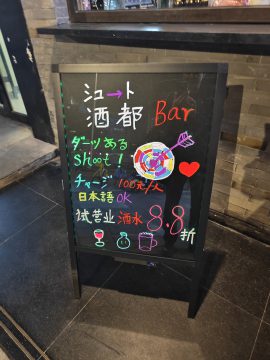 シュート
酒都 Bar
ダーツある
shoot!
チャージ 100元/人
日本語OK
试营业酒水8.8折